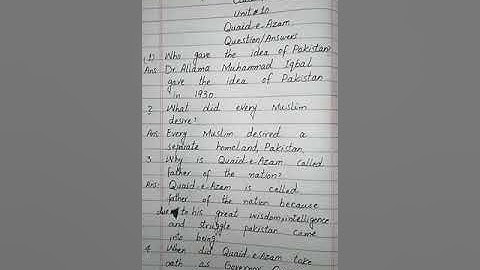 Unit # 10
Quaid-e-Azam
Question/Answers
(1) Who gave the idea of Pakistan
Ans: Dr. Allama Muhammad Iqbal
gave the idea of Pakistan
in 1930.
2. What did every Muslim
desire?
Ans: Every Muslim desired a
separate homeland, Pakistan.
3. Why is Quaid-e-Azam called
father of the nation?
Ans: Quaid-e-Azam is called
father of the nation because
due to his great wisdom, intelligence
and struggle pakistan came
into being.
4. When did Quaid-e-Azam take
oath as Governor